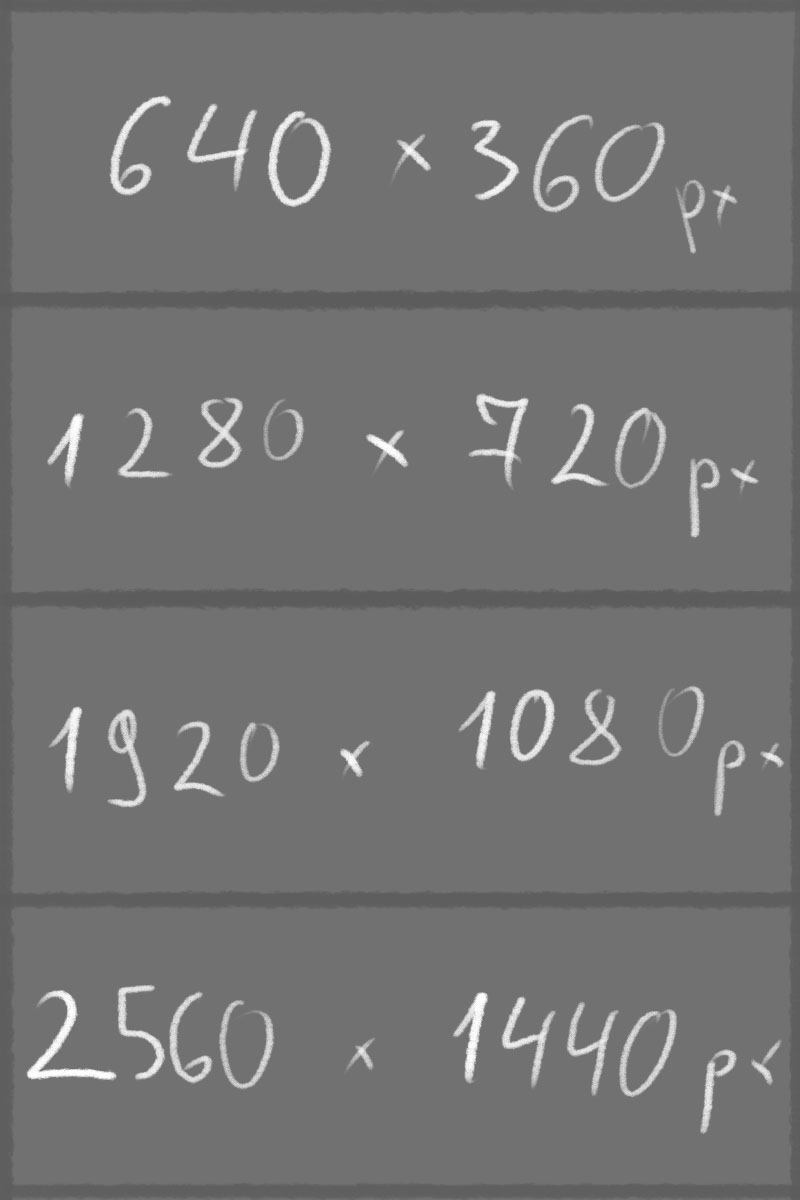 640 x 360 px
1280 x 720 px
1920 x 1080 px
2560 x 1440 px